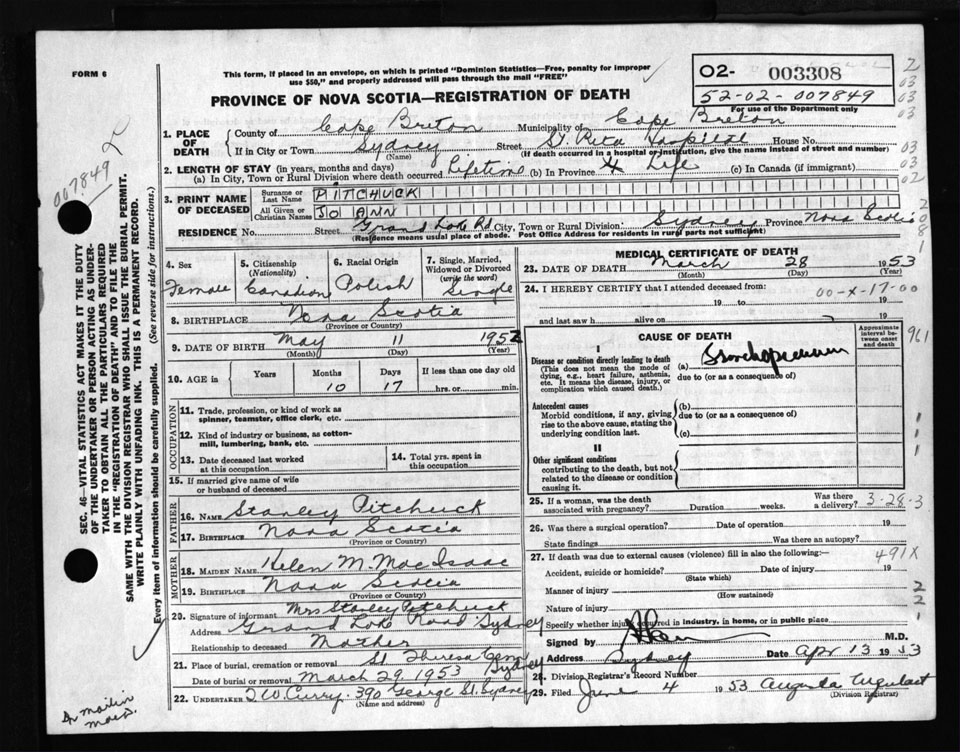 FORM 6
This form, if placed in an envelope, on which is printed "Dominion Statistics—Free, penalty for improper
use $50," and properly addressed will pass through the mail "FREE"
02- 003308
52-02-007849
For use of the Department only
PROVINCE OF NOVA SCOTIA—REGISTRATION OF DEATH
007849
1. PLACE OF DEATH
County of Cape Breton Municipality of Cape Breton
If in City or Town Sydney Street St. Rita Hospital House No.
(Name) (If death occurred in a hospital or institution, give the name instead of street and number)
2. LENGTH OF STAY (in years, months and days)
(a) In City, Town or Rural Division where death occurred Lifetime (b) In Province Life (c) In Canada (if immigrant)
3. PRINT NAME OF DECEASED
Surname or Last Name PITCHUCK
All Given or Christian Names JO ANN
RESIDENCE No. Street Grand Lake Rd. City, Town or Rural Division Sydney Province Nova Scotia
(Residence means usual place of abode. Post Office Address for residents in rural parts not sufficient)
4. Sex Female
5. Citizenship (Nationality) Canadian
6. Racial Origin Polish
7. Single, Married, Widowed or Divorced (write the word) Single
8. BIRTHPLACE Nova Scotia
(Province or Country)
9. DATE OF BIRTH May 11 1952
(Month) (Day) (Year)
10. AGE in Years Months 10 Days 17 If less than one day old hrs. or min.
OCCUPATION
11. Trade, profession, or kind of work as spinner, teamster, office clerk, etc.
12. Kind of industry or business, as cotton-mill, lumbering, bank, etc.
13. Date deceased last worked at this occupation
14. Total yrs. spent in this occupation
15. If married give name of wife or husband of deceased
FATHER
16. Name Stanley Pitchuck
17. Birthplace Nova Scotia
(Province or Country)
MOTHER
18. Maiden Name Helen M. MacIsaac
19. Birthplace Nova Scotia
(Province or Country)
20. Signature of informant Mrs Stanley Pitchuck
Address Grand Lake Road Sydney
Relationship to deceased Mother
21. Place of burial, cremation or removal St. Theresa Cem Sydney
Date of burial or removal March 29, 1953
22. Undertaker T.W. Curry. 390 George St. Sydney
(Name and address)
MEDICAL CERTIFICATE OF DEATH
23. DATE OF DEATH March 28 1953
(Month) (Day) (Year)
24. I HEREBY CERTIFY that I attended deceased from:
00-X-17-00
19 to 19
and last saw h alive on 19
CAUSE OF DEATH
Approximate interval between onset and death
I
Disease or condition directly leading to death
(This does not mean the mode of dying, e.g., heart failure, asthenia, etc. It means the disease, injury, or complication which caused death.)
(a) Bronchopneumonia
due to (or as a consequence of)
Antecedent causes
Morbid conditions, if any, giving rise to the above cause, stating the underlying condition last.
(b)
due to (or as a consequence of)
(c)
II
Other significant conditions
contributing to the death, but not related to the disease or condition causing it.
25. If a woman, was the death associated with pregnancy? Duration weeks. Was there a delivery? 3-28-3
26. Was there a surgical operation? Date of operation 19
State findings Was there an autopsy?
27. If death was due to external causes (violence) fill in also the following:— 491X
Accident, suicide or homicide? Date of injury 19
(State which)
Manner of injury
(How sustained)
Nature of injury
Specify whether injury occurred in industry, in home, or in public place
Signed by M.D.
Address Sydney Date Apr 13 1953
28. Division Registrar's Record Number
29. Filed June 4 1953
(Division Registrar)
SEC. 46—VITAL STATISTICS ACT MAKES IT THE DUTY
OF THE UNDERTAKER OR PERSON ACTING AS UNDER-
TAKER TO OBTAIN ALL THE PARTICULARS REQUIRED
IN THE "REGISTRATION OF DEATH" AND TO FILE THE
SAME WITH THE DIVISION REGISTRAR WHO SHALL ISSUE THE BURIAL PERMIT.
WRITE PLAINLY WITH UNFADING INK. THIS IS A PERMANENT RECORD.
Every item of information should be carefully supplied. (See reverse side for instructions.)